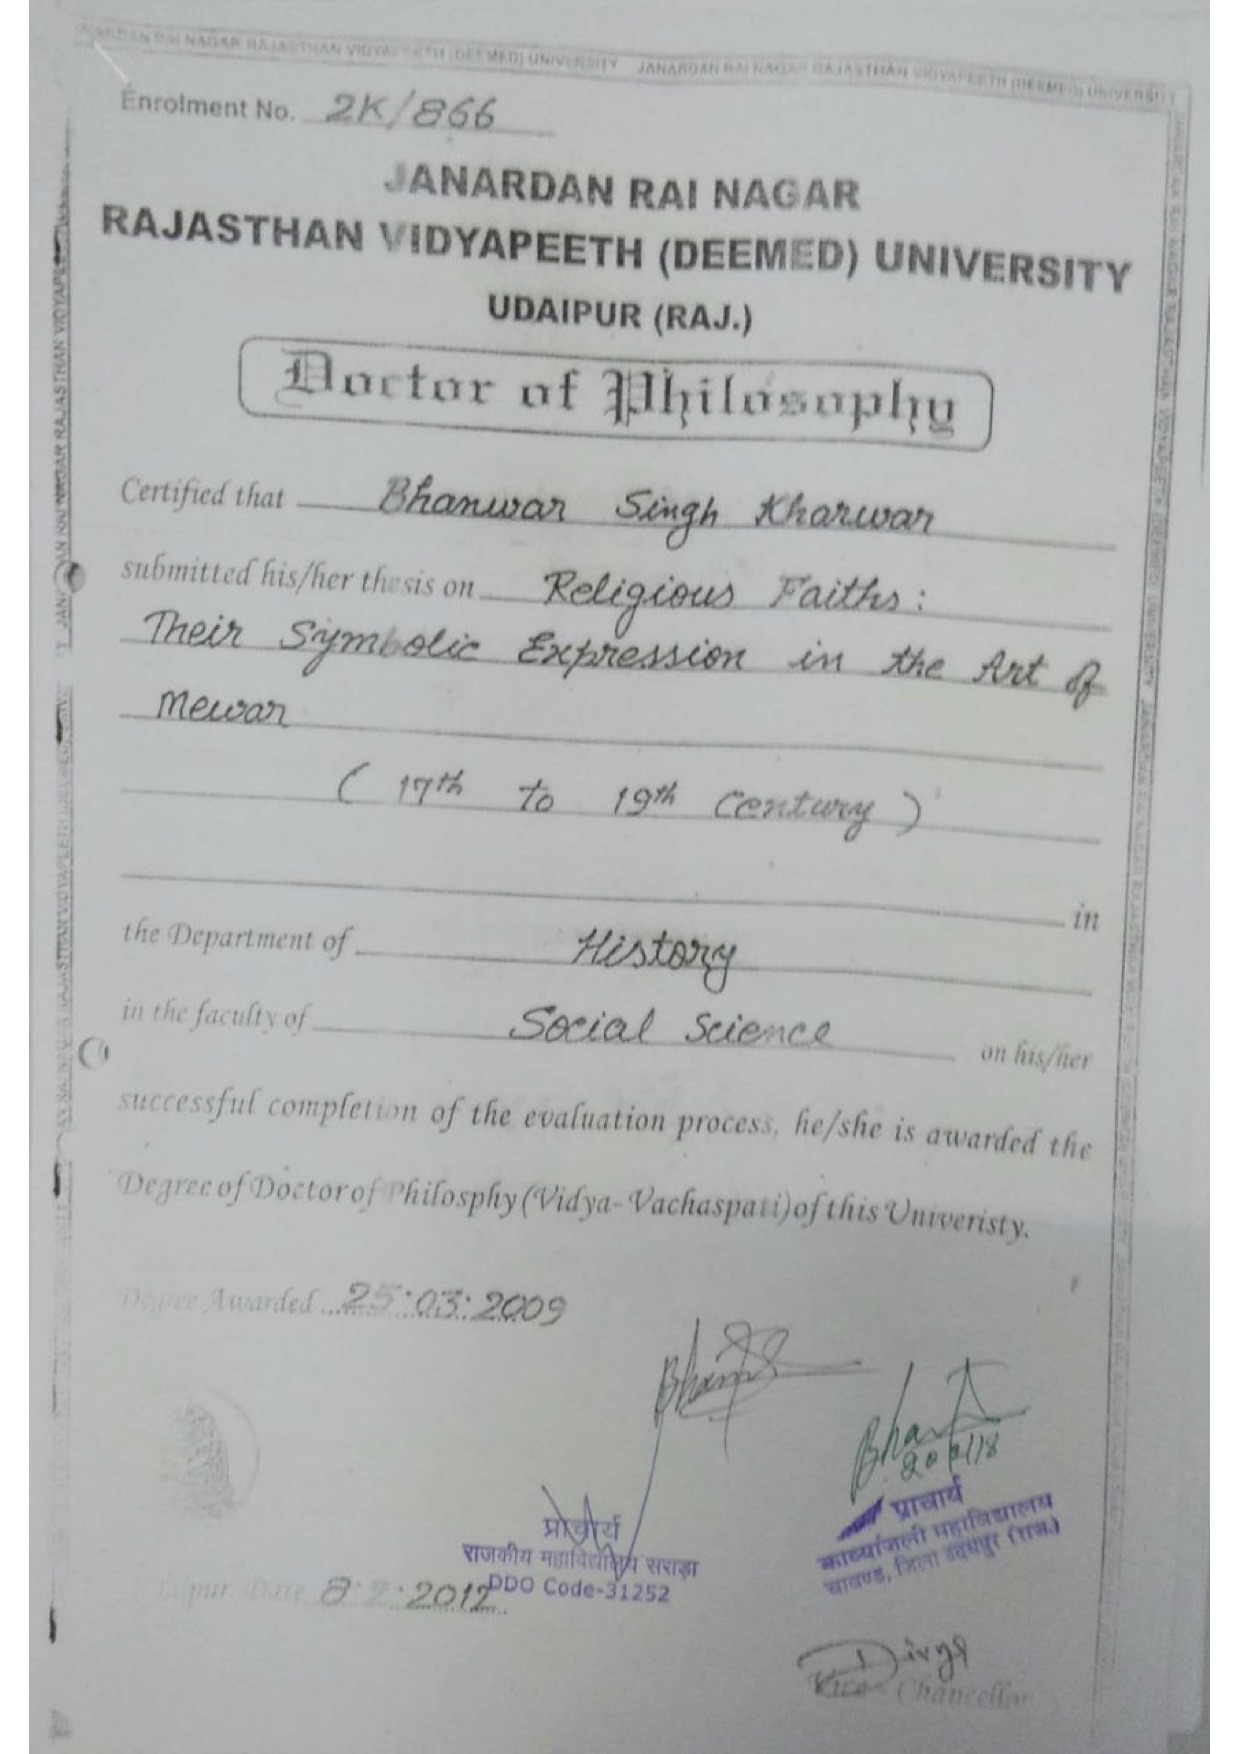 JANARDAN RAI NAGAR RAJASTHAN VIDYAPEETH (DEEMED) UNIVERSITY JANARDAN RAI NAGAR RAJASTHAN VIDYAPEETH (DEEMED) UNIVERSITY
Enrolment No. 2K/866
JANARDAN RAI NAGAR
RAJASTHAN VIDYAPEETH (DEEMED) UNIVERSITY
UDAIPUR (RAJ.)
Doctor of Philosophy
Certified that Bhanwar Singh Kharwar
submitted his/her thesis on Religious Faiths:
Their Symbolic Expression in the Art of
Mewar
( 17th to 19th Century )
in
the Department of History
in the faculty of Social Science on his/her
successful completion of the evaluation process, he/she is awarded the
Degree of Doctor of Philosphy (Vidya-Vachaspati) of this Univeristy.
Degree Awarded 25:03:2009
प्राचार्य
राजकीय महाविद्यालय सराड़ा
DDO Code-31252
प्राचार्य
काव्यांजली महाविद्यालय
चावण्ड, जिला उदयपुर (राज.)
Date 8.2.2012
Vice Chancellor